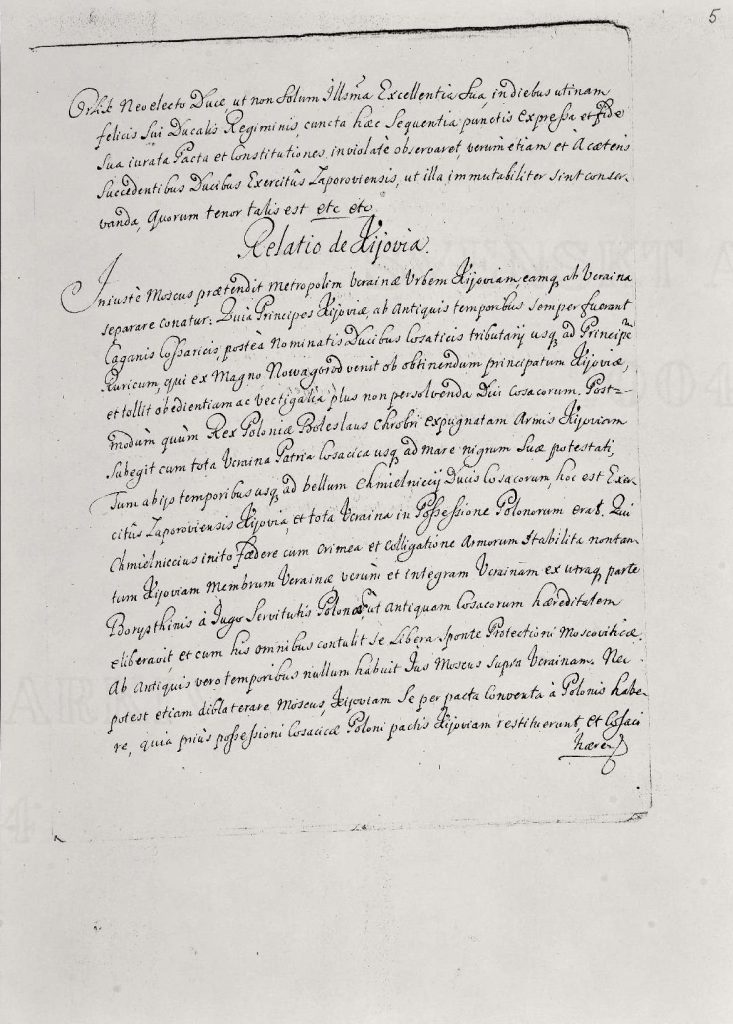 5
Orlik Neo electo Duce, ut non Solum Illsma Excellentia Sua, in diebus utinam
felicis Sui Ducalis Regiminis, cuncta hæc Sequentia punctis expressa et fide
Sua iurata Pacta et Constitutiones, inviolatè observaret, verum etiam et à cæteris
Succedentibus Ducibus Exercitûs Zaporoviensis, ut illa immutabiliter sint conser-
vanda, Quorum tenor talis est etc etc
Relatio de Kijovia.
Iniustè Moscus prætendit metropolim Ucrainæ Urbem Kijoviam, eamq, ab Ucraina
separare conatur: Quia Principes Kijoviæ, ab Antiquis temporibus semper fuerunt
Caganis Cossaricis, posteà Nominatis Ducibus Cosaticis tributarij usq, ad Principem
Ruricum, qui ex Magno Nowagorod venit ob obtinendum principatum Kijoviæ,
et tollit obedientiam ac vectigalia plus non persolvenda Duci Cosacorum. Post-
modùm quùm Rex Poloniæ Boleslaus Chrobri expugnatam Armis Kijoviam
Subegit cum tota Ucraina Patria Cosacica usq, ad mare nigrum Suæ potestati,
Tum ab ijs temporibus usq, ad bellum Chmielniccij Ducis Cosacorum, hoc est Exer-
citûs Zaporoviensis Kijovia, et tota Ucraina in Possessione Polonorum erat. Qui
Chmielniccius inito Fædere cum Crimea et Colligatione Armorum Stabilita non tan-
tum Kijoviam Membrum Ucrainæ verùm et integram Ucrainam ex utraq, parte
Borysthinis à Iugo Servitutis Polonæ, ut Antiquam Cosacorum hæreditatem
eliberavit, et cum his omnibus contulit se Libera Sponte Protectioni Moscoviticæ.
Ab Antiquis vero temporibus nullum habuit Ius Moscus supra Ucrainam. Nec
potest etiam diblaterare Moscus, Kijoviam Se per pacta Conventa à Polonis habe-
re, quia priùs possessioni Cosacicæ Poloni pactis Kijoviam restituerunt, et Cosaci
hære